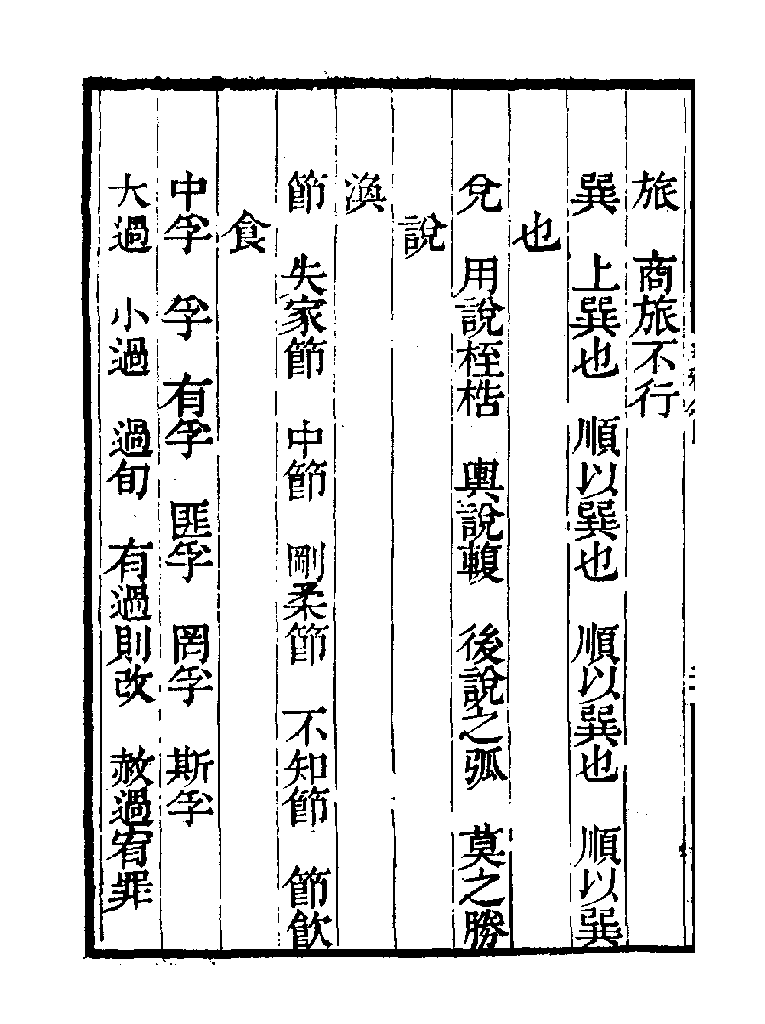 旅　商旅不行
巽　上巽也　順以巽也　順以巽也　順以巽
也
兌　用說桎梏　輿說輹　後說之弧　莫之勝
說
渙
節　失家節　中節　剛柔節　不知節　節飲
食
中孚　孚　有孚　匪孚　罔孚　斯孚
大過　小過　過旬　有過則改　赦過宥罪